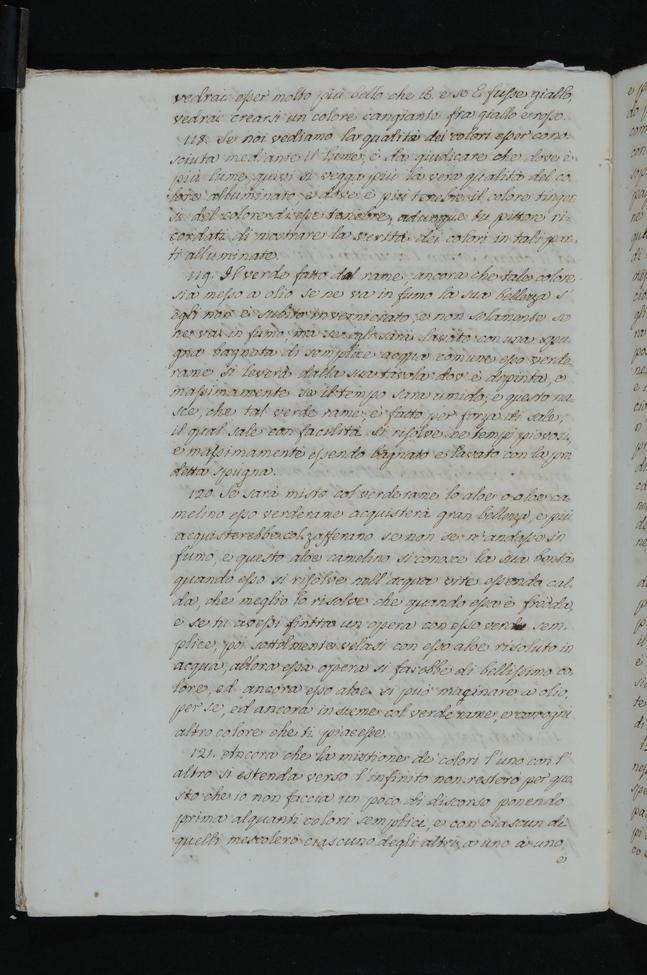 vedrai esser molto più bello che B. e se E fusse giallo,
vedrai crearsi un colore cangiante fra giallo e rosso.
118. Se noi vediamo la qualità dei colori esser cono
sciuta mediante il lume, è da giudicare che dove è
più lume, quivi si vegga più la vera qualità del co
lore alluminato, e dove è più tenebre il colore tinge
si del colore di esse tenebre, adunque tu pittore ri
cordati di mostrare la verità dei colori in tali par
ti alluminate.
119. Il verde fatto dal rame, ancora che tale colore
sia messo a olio se ne va in fumo la sua bellezza s'
egli non è subito inverniciato, e non solamente se
ne va in fumo, ma se egli sarà lavato con una spu
gna bagnata di semplice acqua comune esso verde
rame si leverà dalla sua tavola dov'è dipinta, e
massimamente se il tempo sarà umido, e questo na
sce, che tal verde rame è fatto per forza di sale,
il qual sale con facilità si risolve ne tempi piovosi,
e massimamente essendo bagnato e lavato con la pre
detta spugna.
120. Se sarà misto col verderame lo aloe o aloe ca
melino esso verderame acquisterà gran bellezza, e più
acquisterebbe col zafferano se non se n'andasse in
fumo, e questo aloe camelino si conosce la sua bontà
quando esso si risolve nell'acqua vite essendo cal
da, che meglio lo risolve che quando essa è fredda,
e se tu avessi finito un opera con esso verde sem
plice, poi sottilmente velassi con esso aloe risoluto in
acqua, allora essa opera si farebbe di bellissimo co
lore, ed ancora esso aloe si può macinare a olio,
per se, ed ancora insieme col verde rame, e con ogni
altro colore che ti piacesse.
121. Ancora che la mistione de' colori l'uno con l'
altro si estenda verso l'infinito non resterò per que
sto che io non faccia un poco di discorso ponendo
prima alquanti colori semplici, e con ciascun di
quelli mescolerò ciascuno degli altri, a uno a uno,
e